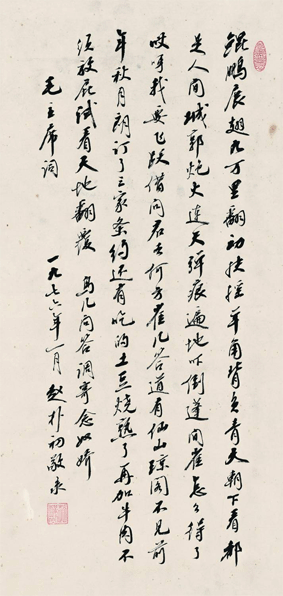 鲲鹏展翅九万里翻动扶摇羊角背负青天朝下看都
是人间城郭炮火连天弹痕遍地吓倒蓬间雀怎么得了
哎呀我要飞跃借问君去何方雀儿答道有仙山琼阁不见前
年秋月朗订了三家条约还有吃的土豆烧熟了再加牛肉不
须放屁试看天地翻覆 鸟儿问答调寄念奴娇
毛主席词
一九七六年一月赵朴初敬录